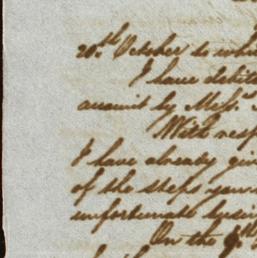 20th October to whi
I have debite
account by Messrs
With resp
I have already giv
of the steps
unfortunate
On the 9th